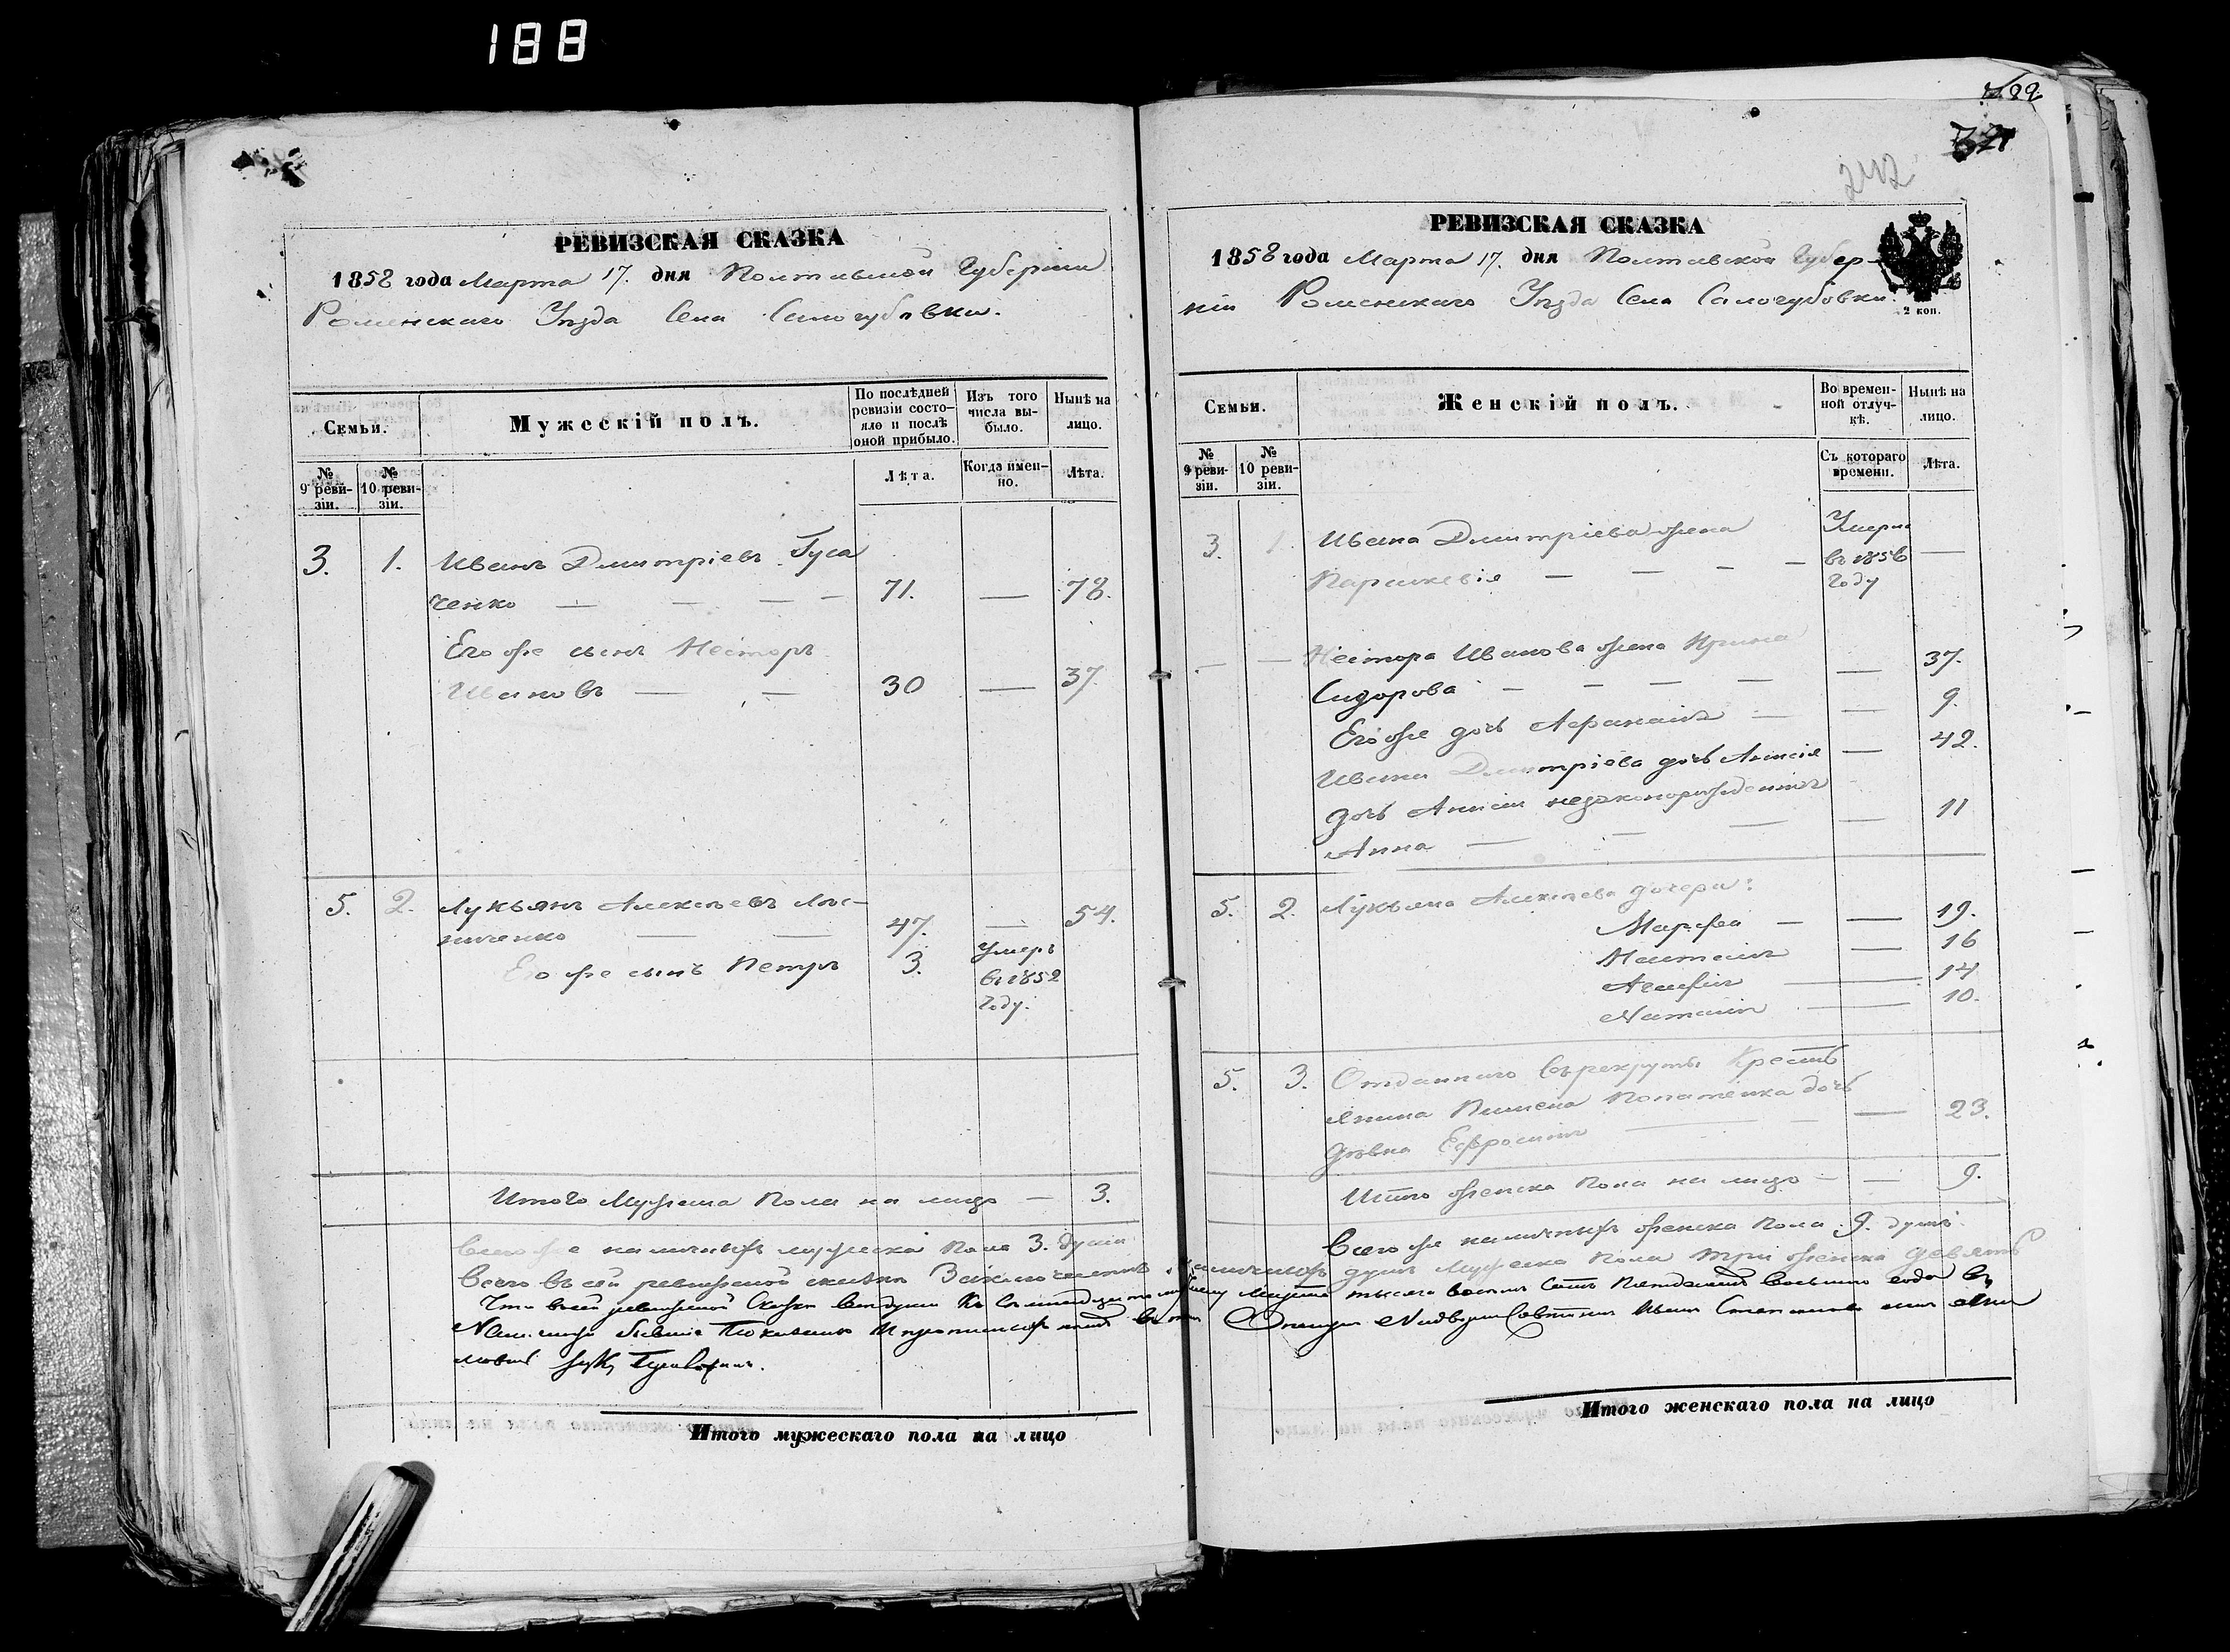 188
РЕВИЗСКАЯ СКАЗКА
1858 года Марта 17. дня Полтавской Губернии
Роменскаго Уѣзда Села Салогубовки.
Семьи.
Мужескій полъ.
По послѣдней ревизіи состояло и послѣ оной прибыло.
Изъ того числа выбыло.
Нынѣ на лицо.
№ 9 ревизіи.
№ 10 ревизіи.
Лѣта.
Когда именно.
Лѣта.
3. 1. Иванъ Дмитріевъ Гуса
ченко — — — — 71. — 78.
Его же сынъ Несторъ
Ивановъ — — 30 — 37.
5. 2. Лукьянъ Алексѣевъ Лѣс-
ниченко — — 47. — 54.
Его же сынъ Петръ 3. Умеръ
въ 1852
году.
Итого Мужеска Пола на лицо — 3.
Всего же наличныхъ мужеска Пола 3. души
Итого мужескаго пола на лицо
189
242
РЕВИЗСКАЯ СКАЗКА
1858 года Марта 17. дня Полтавской Губер-
ніи Роменскаго Уѣзда Села Салогубовки.
2 коп.
Семьи.
Женскій полъ.
Во временной отлучкѣ.
Нынѣ на лицо.
№ 9 ревизіи.
№ 10 ревизіи.
Съ котораго времени.
Лѣта.
3. 1. Ивана Дмитріева жена Умерла
Параскевія — — — — въ 1856 —
году
— — Нестора Иванова жена Ирина
Сидорова — — — — — 37.
Его же дочь — — 9.
Ивана Дмитріева дочь Анисія — 42.
дочь Анисіи незаконорожденная
Анна — — — — 11
5. 2. Лукьяна Алексѣева дочери:
Марфа — — 19.
— 16
Агафія — 14
Наталія — 10.
5. 3. Отданнаго въ рекруты Кресть
янина Пимена дочь
дѣвка Ефросинія — — — 23.
Итого женска Пола на лицо — — 9.
Всего же наличныхъ женска Пола 9. душъ
Всего въ сей ревизской сказкѣ Заключается наличныхъ душъ Мужеска Пола три женска девять
Итого женскаго пола на лицо